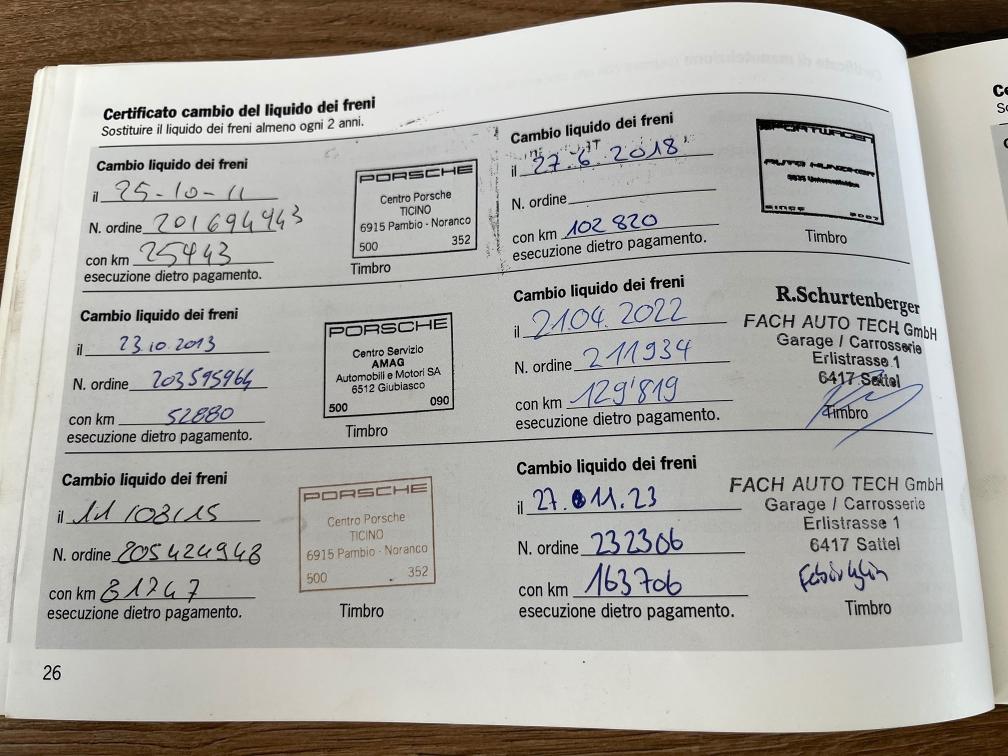 Certificato cambio del liquido dei freni
Sostituire il liquido dei freni almeno ogni 2 anni.
Cambio liquido dei freni
il 25-10-11
N. ordine 201694943
con km 25443
esecuzione dietro pagamento.
PORSCHE
Centro Porsche
TICINO
6915 Pambio - Noranco
500 352
Timbro
Cambio liquido dei freni
il 23.10.2013
N. ordine 203595964
con km 52880
esecuzione dietro pagamento.
PORSCHE
Centro Servizio
AMAG
Automobili e Motori SA
6512 Giubiasco
500 090
Timbro
Cambio liquido dei freni
il 11/03/15
N. ordine 205424948
con km 81747
esecuzione dietro pagamento.
PORSCHE
Centro Porsche
TICINO
6915 Pambio - Noranco
500 352
Timbro
Cambio liquido dei freni
il 27.6.2018
N. ordine
con km 102820
esecuzione dietro pagamento.
SPORTWAGEN
AUTO
SINCE
Timbro
Cambio liquido dei freni
il 21.04.2022
N. ordine 211934
con km 129'819
esecuzione dietro pagamento.
R.Schurtenberger
FACH AUTO TECH GmbH
Garage / Carrosserie
Erlistrasse 1
6417 Sattel
Timbro
Cambio liquido dei freni
il 27.11.23
N. ordine 232306
con km 163706
esecuzione dietro pagamento.
FACH AUTO TECH GmbH
Garage / Carrosserie
Erlistrasse 1
6417 Sattel
Timbro
26